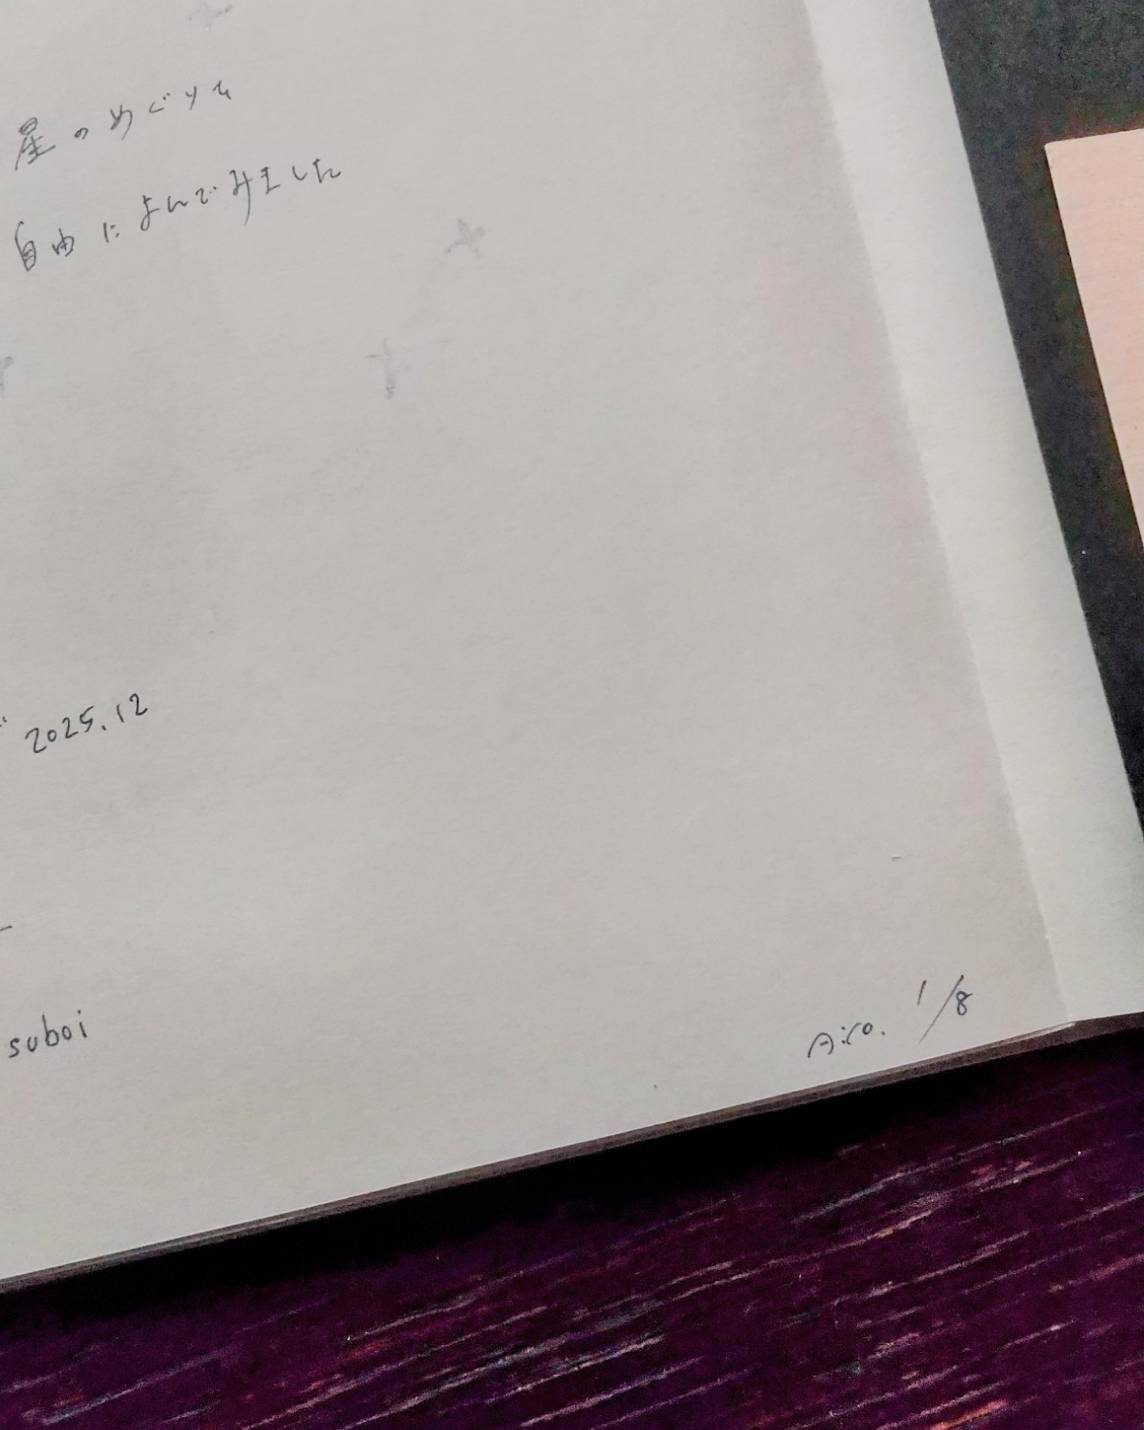 星のめぐりを
自由によんでみました
2025.12
suboi
Aico. 1/8